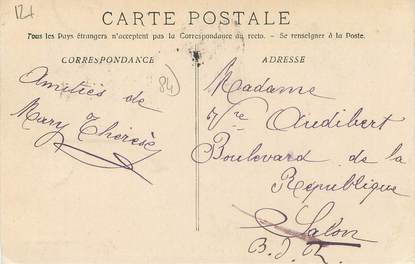 CARTE POSTALE
Tous les Pays étrangers n'acceptent pas la Correspondance au recto. - Se renseigner à la Poste.
CORRESPONDANCE
Amitiés de
Mary Thérèse
84
ADRESSE
Madame
Vve Audibert
Boulevard de la
République
Salon
B. d. R.